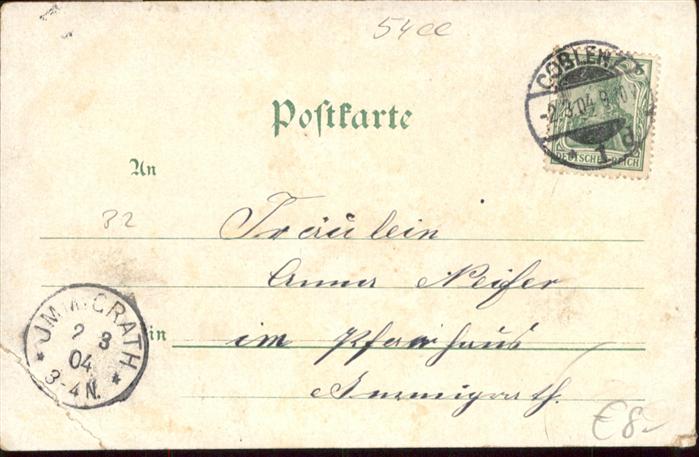 54cc
COBLENZ
-2.3.04.9
1 d
DEUTSCHES REICH
Postkarte
An
32
Fräulein
Anna Neifer
in im Pfarrhaus
Immigrath.
IMMIGRATH
2 3
04
3-4N.
€8-